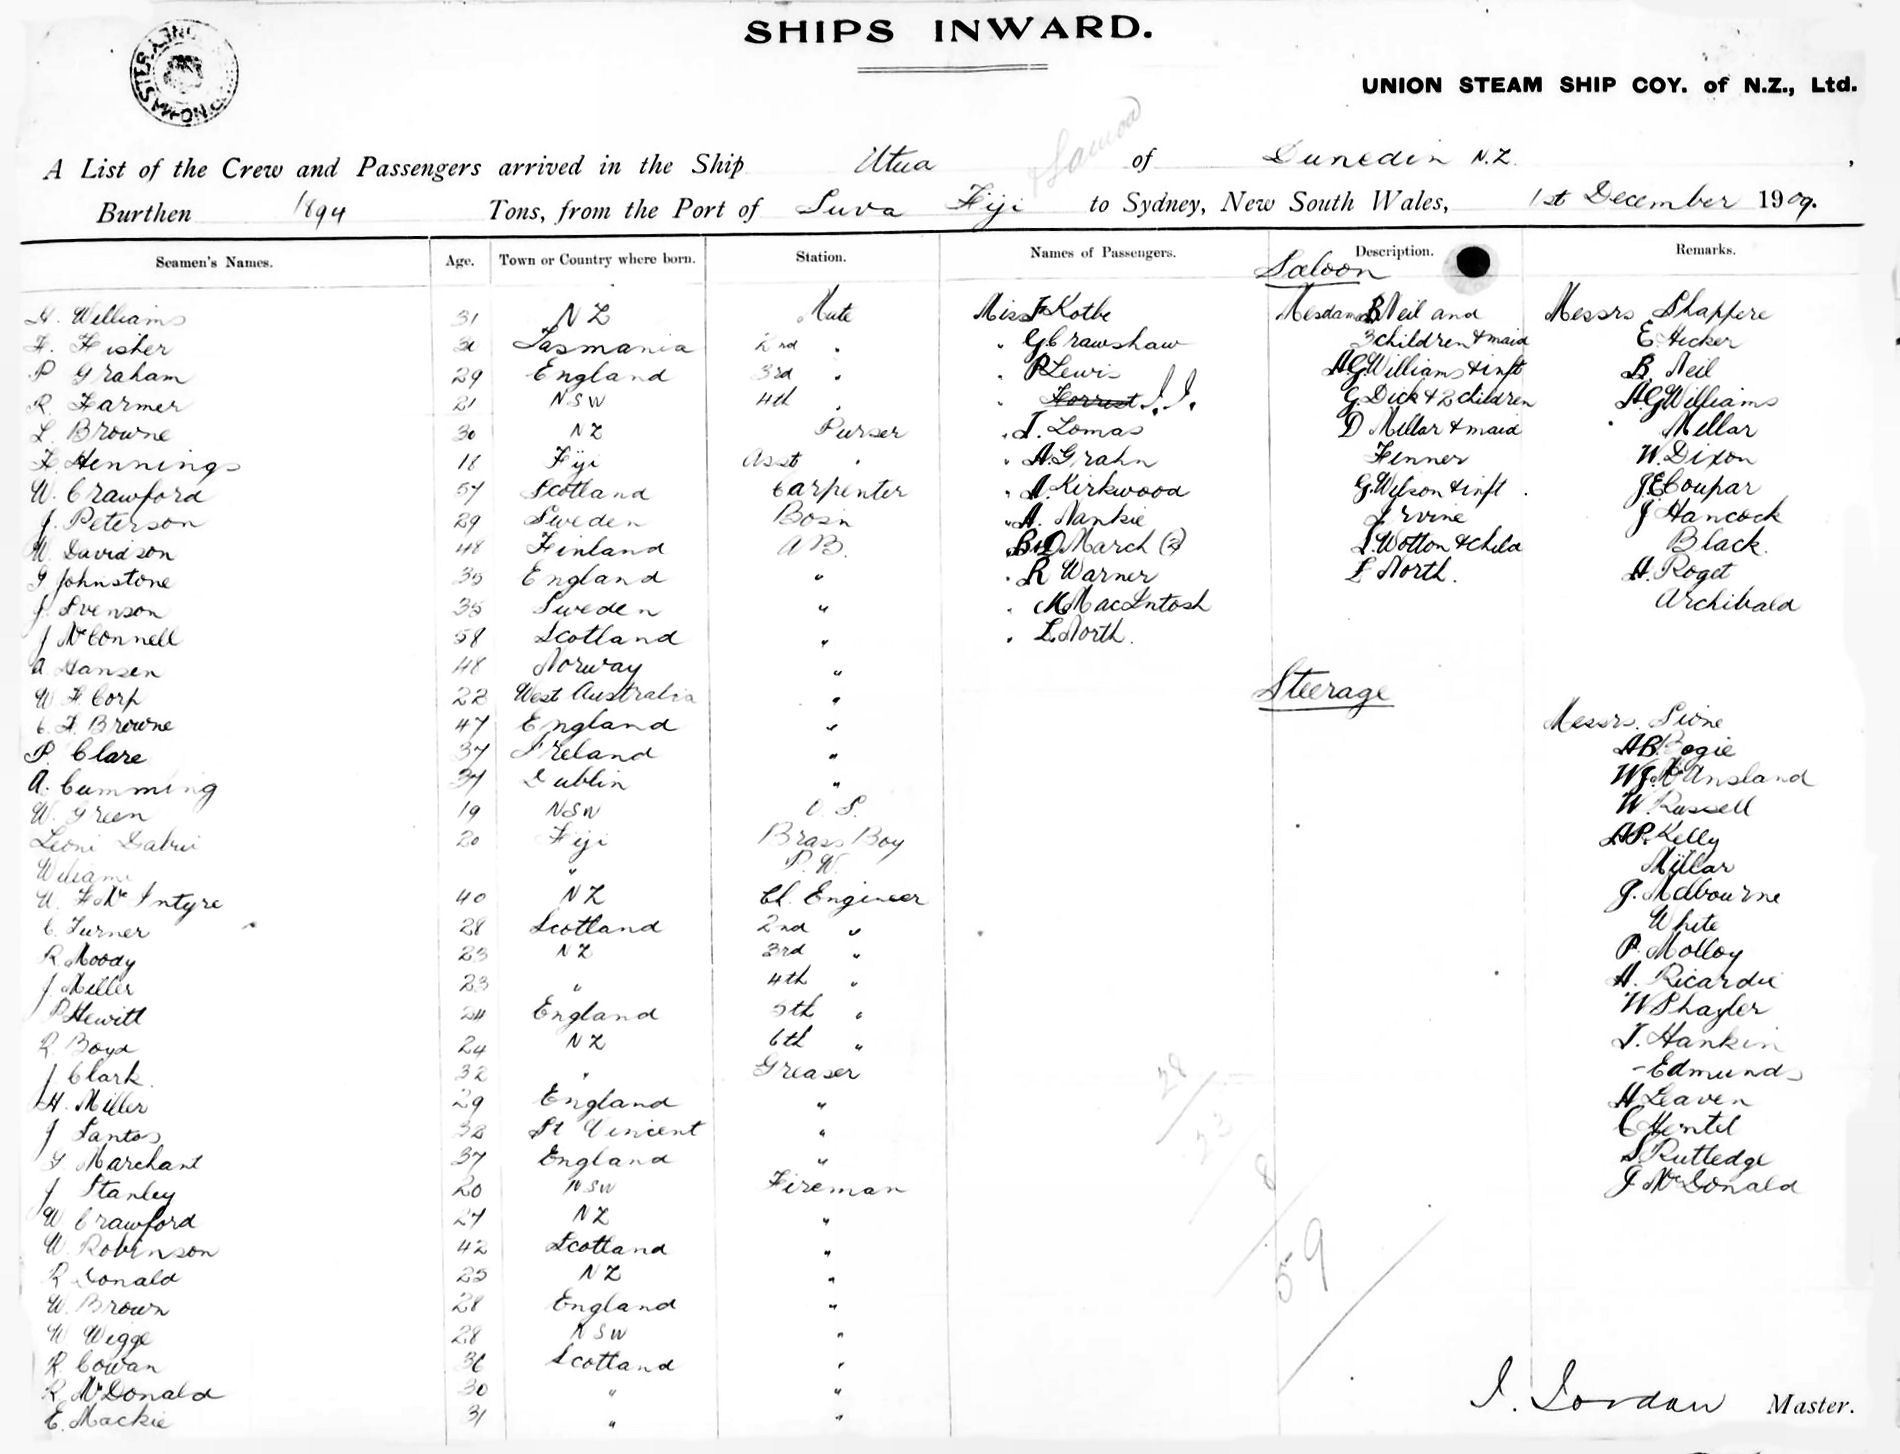 SHIPS INWARD.
UNION STEAM SHIP COY. of N.Z., Ltd.
Samoa
A List of the Crew and Passengers arrived in the Ship Atua of Dunedin N.Z.,
Burthen 1894 Tons, from the Port of Suva Fiji to Sydney, New South Wales, 1st December 1909.
Seamen's Names. Age. Town or Country where born. Station. Names of Passengers. Description. Remarks.
Saloon
H. Williams 31 NZ Mate Miss F Kotbe Mesdames B Neil and Messrs Shappere
F. Fisher 30 Tasmania 2nd " " G Crawshaw 3 children & maid E. Hicker
P Graham 29 England 3rd " " P Lewis A.G. Williams & inft B. Neil
R. Farmer 21 NSW 4th " " Forrest J.J. G. Dick & 2 children A G Williams
L. Browne 30 NZ Purser " J. Lomas D Millar & maid " Millar
F. Hennings 18 Fiji Asst " " A. Grahn Fenner W. Dixon
W. Crawford 57 Scotland Carpenter " A. Kirkwood G. Wilson & inft. J E Coupar
J. Peterson 29 Sweden Bosn " A. Nankie Irvine J Hancock
W. Davidson 48 Finland AB. " B & D March (2) L. Wotton & child Black.
G Johnstone 35 England " " R Warner L North. H. Roget
J. Svenson 35 Sweden " " M. MacIntosh Archibald
J McConnell 58 Scotland " " L. North.
A Hansen 48 Norway "
Steerage
W. F Corp 22 West Australia "
C. F. Browne 47 England " Messrs. Sione
P. Clare 37 Ireland " A B. Bogie
A. Cumming 37 Dublin " W J. McAusland
W. Green 19 NSW O.S. W. Russell
Leoni 20 Fiji Brass Boy A P. Kelly
Wiliami " P.W. Millar
F McIntyre 40 NZ Ch. Engineer J. Melbourne
C. Turner 28 Scotland 2nd " White
R Moody 23 NZ 3rd " P. Molloy
J Miller 23 " 4th " H. Ricardie
P Hewitt 24 England 5th " W Shayler
R. Boyd 24 NZ 6th " T. Hankin
J Clark. 32 " Greaser - Edmunds
H. Miller 29 England " H Leaven
J Santos 32 St Vincent " C Hentel
F Marchant 37 England " S. Rutledge
J Stanley 20 NSW Fireman J McDonald
W Crawford 27 NZ "
W. Robinson 42 Scotland "
R Donald 25 NZ "
W. Brown 28 England "
W Wigge 28 NSW "
R. Cowan 36 Scotland "
R. McDonald 30 " "
E. Mackie 31 " "
28
23
8
59
J. Jordan Master.